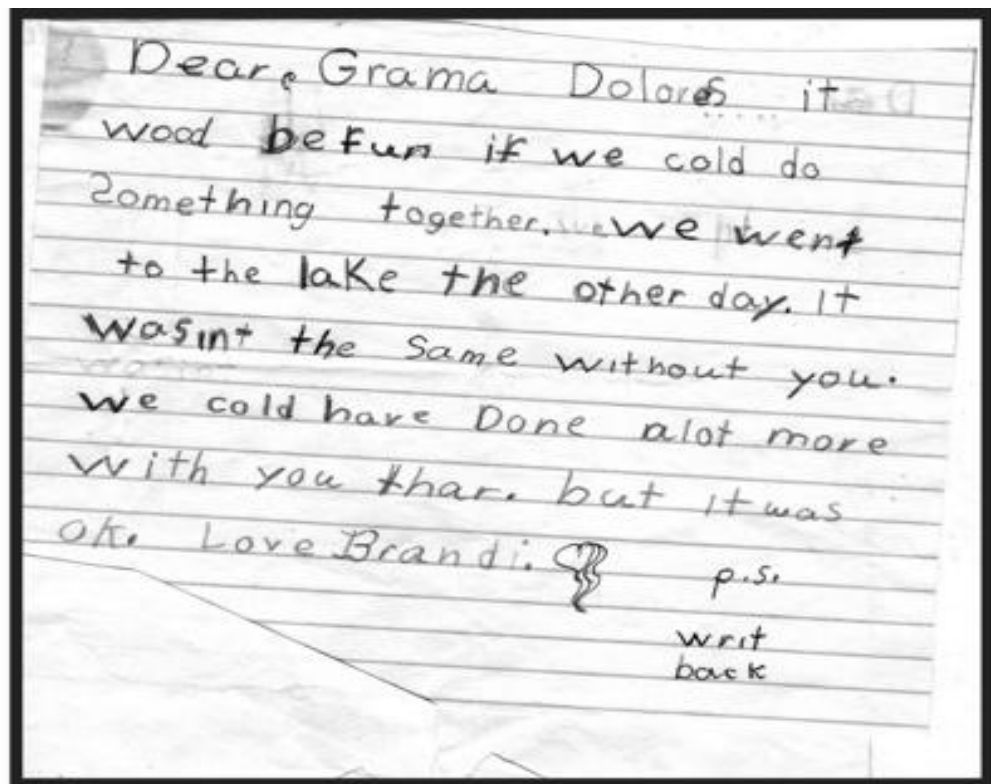 Dear, Grama Dolores it
wood be fun if we cold do
Something together. we went
to the lake the other day. It
wasint the same without you.
we cold have Done alot more
with you thar. but it was
ok. Love Brandi.
p.s.
writ
back